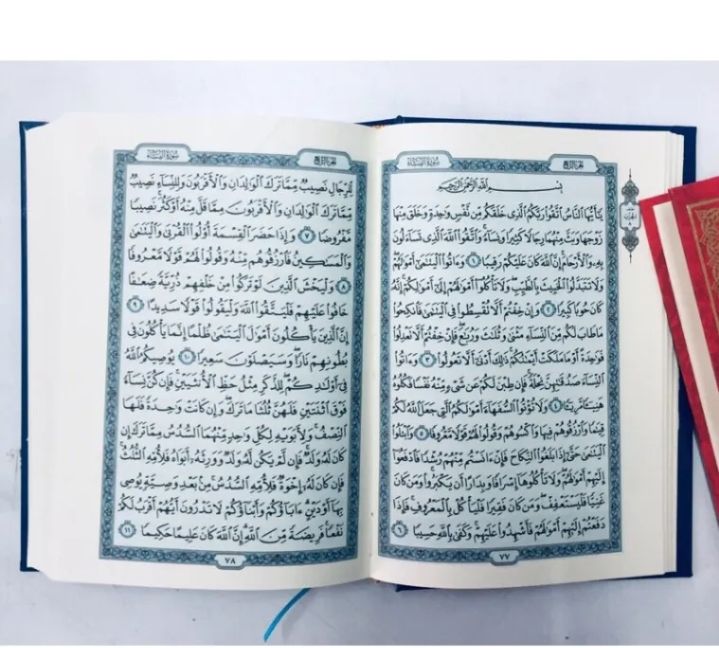 الجزء الرابع
سورة النساء
بِسْمِ اللَّهِ الرَّحْمَٰنِ الرَّحِيمِ
يَٰٓأَيُّهَا ٱلنَّاسُ ٱتَّقُوا۟ رَبَّكُمُ ٱلَّذِى خَلَقَكُم مِّن نَّفْسٍ وَٰحِدَةٍ وَخَلَقَ مِنْهَا
زَوْجَهَا وَبَثَّ مِنْهُمَا رِجَالًا كَثِيرًا وَنِسَآءً وَٱتَّقُوا۟ ٱللَّهَ ٱلَّذِى تَسَآءَلُونَ
بِهِۦ وَٱلْأَرْحَامَ إِنَّ ٱللَّهَ كَانَ عَلَيْكُمْ رَقِيبًا ١ وَءَاتُوا۟ ٱلْيَتَٰمَىٰٓ أَمْوَٰلَهُمْ
وَلَا تَتَبَدَّلُوا۟ ٱلْخَبِيثَ بِٱلطَّيِّبِ وَلَا تَأْكُلُوٓا۟ أَمْوَٰلَهُمْ إِلَىٰٓ أَمْوَٰلِكُمْ إِنَّهُۥ
كَانَ حُوبًا كَبِيرًا ٢ وَإِنْ خِفْتُمْ أَلَّا تُقْسِطُوا۟ فِى ٱلْيَتَٰمَىٰ فَٱنكِحُوا۟
مَا طَابَ لَكُم مِّنَ ٱلنِّسَآءِ مَثْنَىٰ وَثُلَٰثَ وَرُبَٰعَ فَإِنْ خِفْتُمْ أَلَّا تَعْدِلُوا۟
فَوَٰحِدَةً أَوْ مَا مَلَكَتْ أَيْمَٰنُكُمْ ذَٰلِكَ أَدْنَىٰٓ أَلَّا تَعُولُوا۟ ٣ وَءَاتُوا۟
ٱلنِّسَآءَ صَدُقَٰتِهِنَّ نِحْلَةً فَإِن طِبْنَ لَكُمْ عَن شَىْءٍ مِّنْهُ نَفْسًا فَكُلُوهُ
هَنِيٓـًٔا مَّرِيٓـًٔا ٤ وَلَا تُؤْتُوا۟ ٱلسُّفَهَآءَ أَمْوَٰلَكُمُ ٱلَّتِى جَعَلَ ٱللَّهُ لَكُمْ
قِيَٰمًا وَٱرْزُقُوهُمْ فِيهَا وَٱكْسُوهُمْ وَقُولُوا۟ لَهُمْ قَوْلًا مَّعْرُوفًا ٥ وَٱبْتَلُوا۟
ٱلْيَتَٰمَىٰ حَتَّىٰٓ إِذَا بَلَغُوا۟ ٱلنِّكَاحَ فَإِنْ ءَانَسْتُم مِّنْهُمْ رُشْدًا فَٱدْفَعُوٓا۟
إِلَيْهِمْ أَمْوَٰلَهُمْ وَلَا تَأْكُلُوهَآ إِسْرَافًا وَبِدَارًا أَن يَكْبَرُوا۟ وَمَن كَانَ
غَنِيًّا فَلْيَسْتَعْفِفْ وَمَن كَانَ فَقِيرًا فَلْيَأْكُلْ بِٱلْمَعْرُوفِ فَإِذَا
دَفَعْتُمْ إِلَيْهِمْ أَمْوَٰلَهُمْ فَأَشْهِدُوا۟ عَلَيْهِمْ وَكَفَىٰ بِٱللَّهِ حَسِيبًا ٦
٧٧
الحزب
٨
الجزء الرابع
سورة النساء
لِّلرِّجَالِ نَصِيبٌ مِّمَّا تَرَكَ ٱلْوَٰلِدَانِ وَٱلْأَقْرَبُونَ وَلِلنِّسَآءِ نَصِيبٌ
مِّمَّا تَرَكَ ٱلْوَٰلِدَانِ وَٱلْأَقْرَبُونَ مِمَّا قَلَّ مِنْهُ أَوْ كَثُرَ نَصِيبًا
مَّفْرُوضًا ٧ وَإِذَا حَضَرَ ٱلْقِسْمَةَ أُو۟لُوا۟ ٱلْقُرْبَىٰ وَٱلْيَتَٰمَىٰ
وَٱلْمَسَٰكِينُ فَٱرْزُقُوهُم مِّنْهُ وَقُولُوا۟ لَهُمْ قَوْلًا مَّعْرُوفًا
٨ وَلْيَخْشَ ٱلَّذِينَ لَوْ تَرَكُوا۟ مِنْ خَلْفِهِمْ ذُرِّيَّةً ضِعَٰفًا
خَافُوا۟ عَلَيْهِمْ فَلْيَتَّقُوا۟ ٱللَّهَ وَلْيَقُولُوا۟ قَوْلًا سَدِيدًا ٩
إِنَّ ٱلَّذِينَ يَأْكُلُونَ أَمْوَٰلَ ٱلْيَتَٰمَىٰ ظُلْمًا إِنَّمَا يَأْكُلُونَ فِى
بُطُونِهِمْ نَارًا وَسَيَصْلَوْنَ سَعِيرًا ١٠ يُوصِيكُمُ ٱللَّهُ
فِىٓ أَوْلَٰدِكُمْ لِلذَّكَرِ مِثْلُ حَظِّ ٱلْأُنثَيَيْنِ فَإِن كُنَّ نِسَآءً
فَوْقَ ٱثْنَتَيْنِ فَلَهُنَّ ثُلُثَا مَا تَرَكَ وَإِن كَانَتْ وَٰحِدَةً فَلَهَا
ٱلنِّصْفُ وَلِأَبَوَيْهِ لِكُلِّ وَٰحِدٍ مِّنْهُمَا ٱلسُّدُسُ مِمَّا تَرَكَ إِن
كَانَ لَهُۥ وَلَدٌ فَإِن لَّمْ يَكُن لَّهُۥ وَلَدٌ وَوَرِثَهُۥٓ أَبَوَاهُ فَلِأُمِّهِ ٱلثُّلُثُ
فَإِن كَانَ لَهُۥٓ إِخْوَةٌ فَلِأُمِّهِ ٱلسُّدُسُ مِنۢ بَعْدِ وَصِيَّةٍ يُوصِى
بِهَآ أَوْ دَيْنٍ ءَابَآؤُكُمْ وَأَبْنَآؤُكُمْ لَا تَدْرُونَ أَيُّهُمْ أَقْرَبُ لَكُمْ
نَفْعًا فَرِيضَةً مِّنَ ٱللَّهِ إِنَّ ٱللَّهَ كَانَ عَلِيمًا حَكِيمًا ١١
٧٨